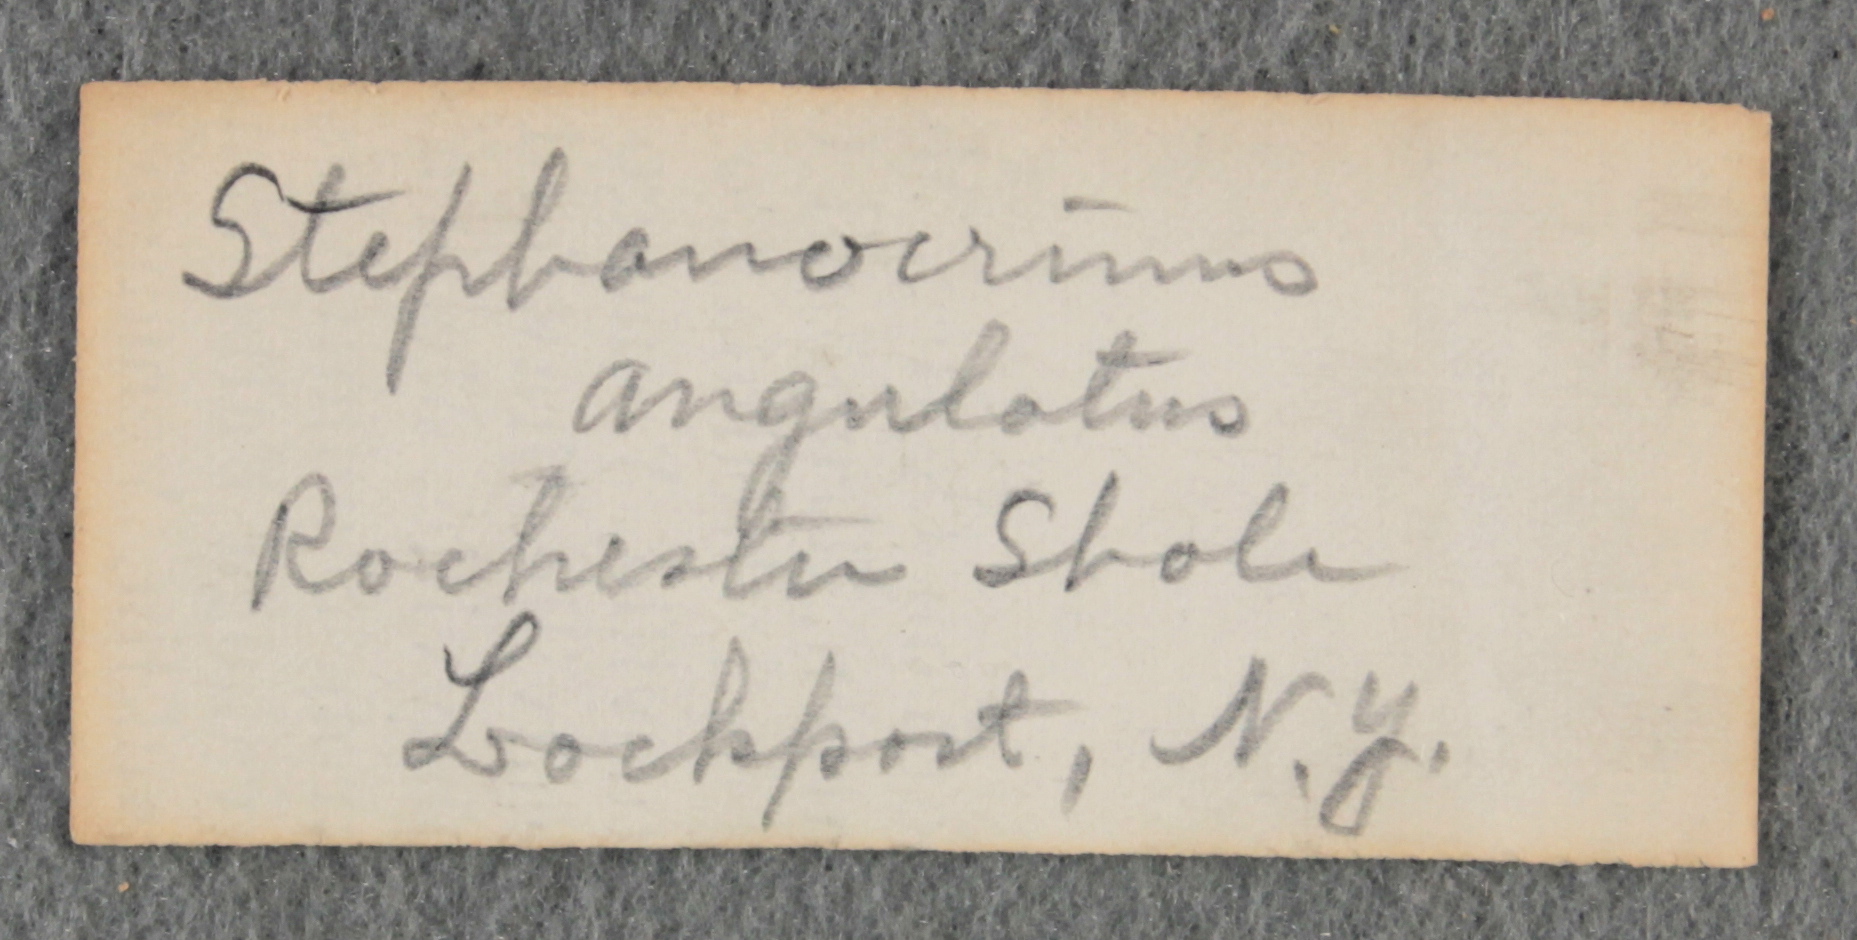 Stephanocrinus
angulatus
Rochester Shale
Lockport, N.Y.